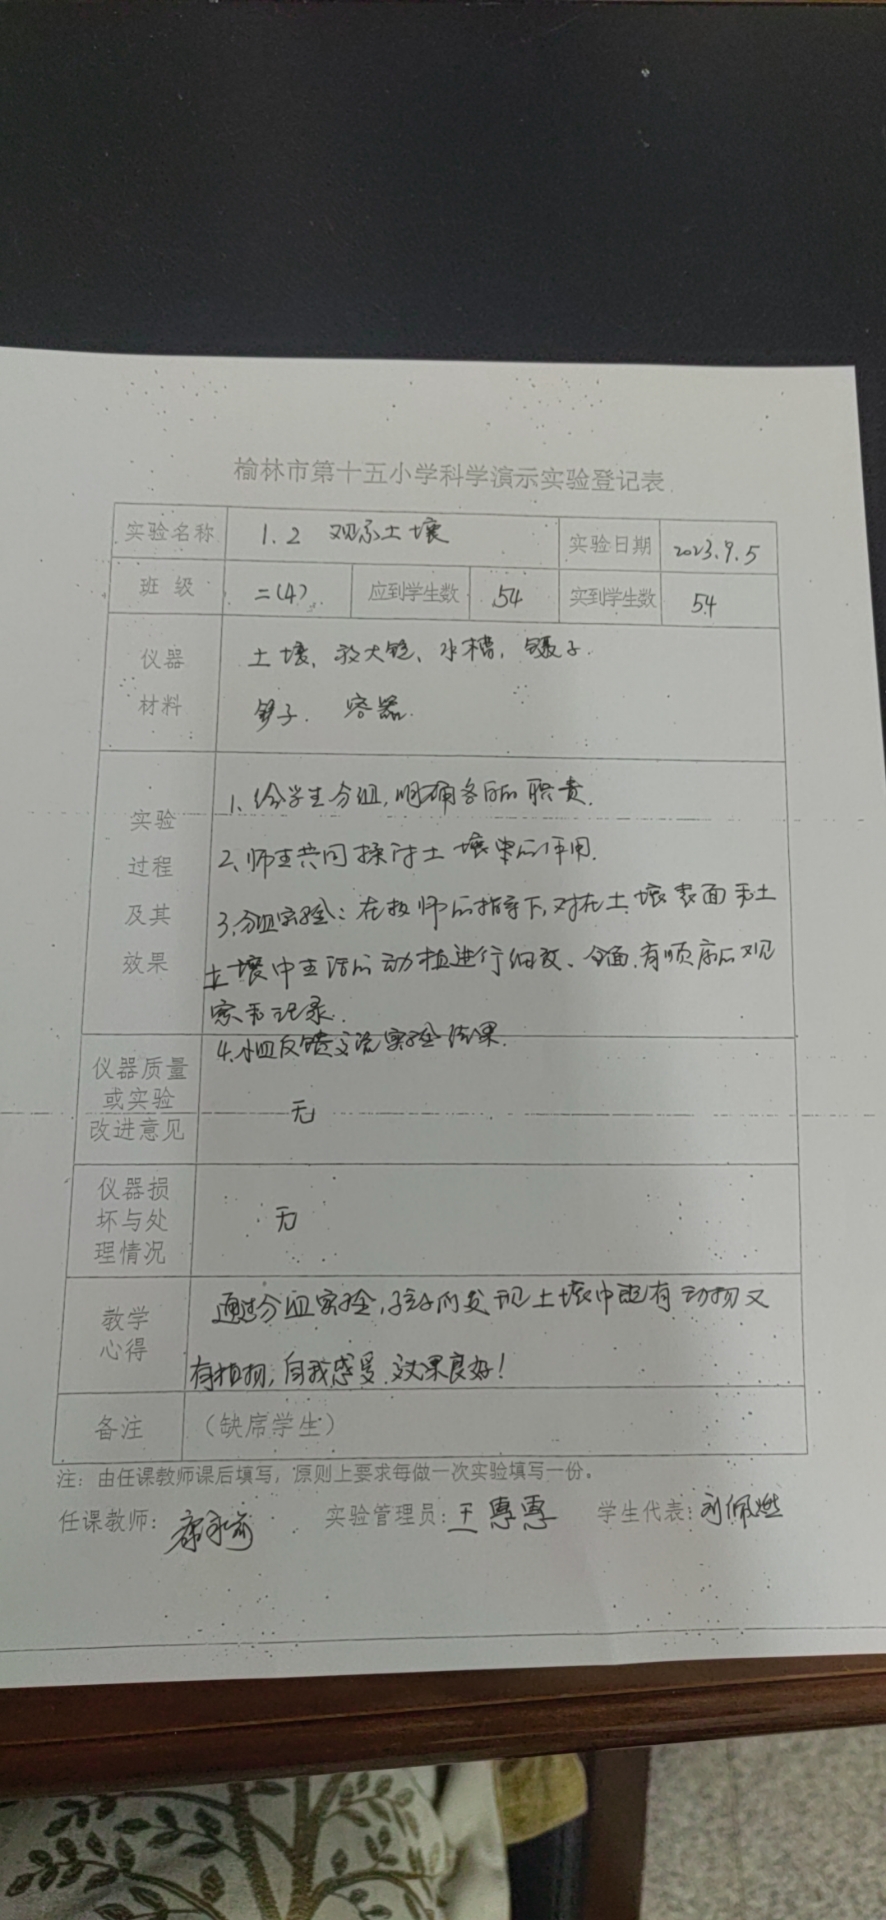 榆林市第十五小学科学演示实验登记表
实验名称 1.2 观察土壤 实验日期 2023.9.5
班 级 二(4) 应到学生数 54 实到学生数 54
仪器 土壤、放大镜、水槽、镊子.
材料 铲子. 容器.
1、给学生分组,明确各自的职责.
实验
过程 2、师生共同探讨土壤里的作用.
及其 3、分组实验:在教师的指导下,对在土壤表面和土
效果 土壤中生活的动植进行细致、全面、有顺序的观
察和记录.
4.小组反馈交流实验结果.
仪器质量
或实验 无
改进意见
仪器损
坏与处 无
理情况
教学 通过分组实验,孩子们发现土壤中既有动物又
心得 有植物,自我感受.效果良好!
备注 (缺席学生)
注:由任课教师课后填写,原则上要求每做一次实验填写一份。
任课教师: 实验管理员:王惠惠 学生代表:刘佩燃